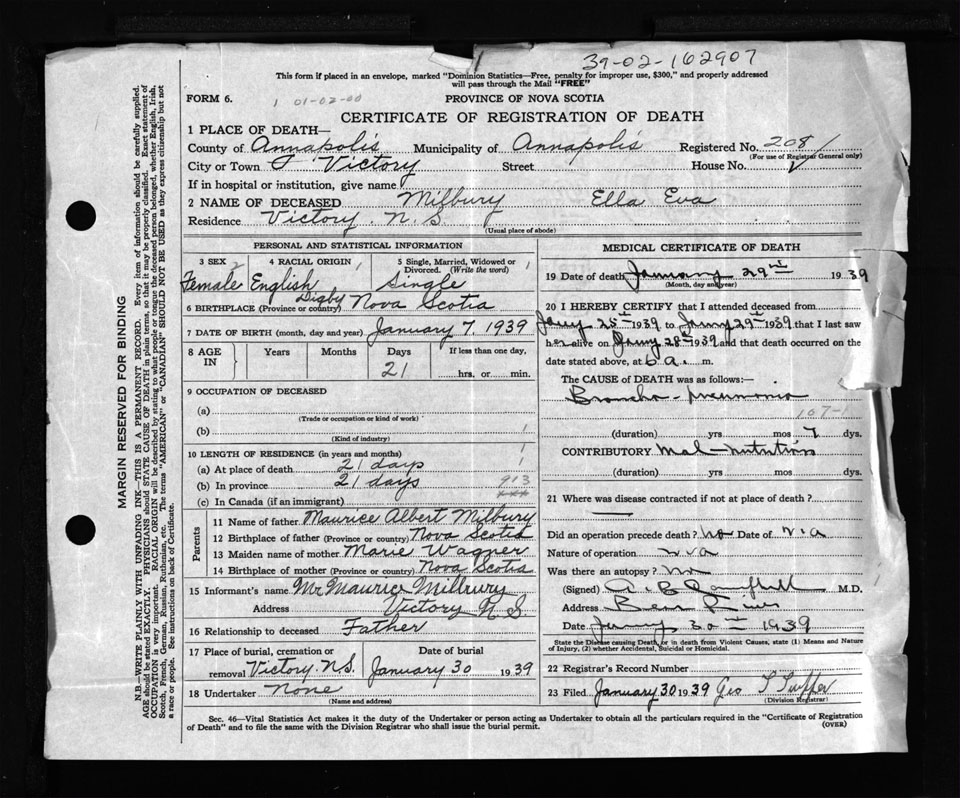 39-02-162907
This form if placed in an envelope, marked "Dominion Statistics—Free, penalty for improper use, $300," and properly addressed
will pass through the Mail "FREE"
FORM 6. 1 01-02-00 PROVINCE OF NOVA SCOTIA
CERTIFICATE OF REGISTRATION OF DEATH
1 PLACE OF DEATH—
County of Annapolis Municipality of Annapolis Registered No. 208
(For use of Registrar General only)
City or Town Victory Street House No.
If in hospital or institution, give name
2 NAME OF DECEASED Milbury Ella Eva
Residence Victory. N.S
(Usual place of abode)
PERSONAL AND STATISTICAL INFORMATION
3 SEX 2 4 RACIAL ORIGIN 1 5 Single, Married, Widowed or Divorced. (Write the word) 1
Female English Single
6 BIRTHPLACE (Province or country) Digby Nova Scotia
7 DATE OF BIRTH (month, day and year) January 7. 1939
8 AGE IN Years Months Days If less than one day,
21 hrs. or min.
9 OCCUPATION OF DECEASED
(a)
(Trade or occupation or kind of work)
(b) 1
(Kind of industry)
10 LENGTH OF RESIDENCE (in years and months) 1
(a) At place of death 21 days 1
(b) In province 21 days 913
(c) In Canada (if an immigrant) xxx
Parents
11 Name of father Maurice Albert Milbury
12 Birthplace of father (Province or country) Nova Scotia
13 Maiden name of mother Marie Wagner
14 Birthplace of mother (Province or country) Nova Scotia
15 Informant's name Mr Maurice Milbury
Address Victory N.S.
16 Relationship to deceased Father
17 Place of burial, cremation or removal Victory. N.S. Date of burial January 30 1939
18 Undertaker None
(Name and address)
MEDICAL CERTIFICATE OF DEATH
19 Date of death January 29th 1939
(Month, day and year)
20 I HEREBY CERTIFY that I attended deceased from
Jany 25th 1939 to Jany 29th 1939 that I last saw
her alive on Jany 28th 1939 and that death occurred on the
date stated above, at 6 a. m.
The CAUSE of DEATH was as follows:—
Broncho-pneumonia
107-1
(duration) yrs mos 7 dys.
CONTRIBUTORY Mal-nutrition
(duration) yrs. mos. dys.
21 Where was disease contracted if not at place of death?
—
Did an operation precede death? No Date of n.a
Nature of operation n.a
Was there an autopsy? No
(Signed) M.D.
Address Bear River
Date Jany 30th 1939
State the Disease causing Death, or in death from Violent Causes, state (1) Means and Nature
of Injury, (2) whether Accidental, Suicidal or Homicidal.
22 Registrar's Record Number
23 Filed January 30 1939 Geo
(Division Registrar)
Sec. 46—Vital Statistics Act makes it the duty of the Undertaker or person acting as Undertaker to obtain all the particulars required in the "Certificate of Registration
of Death" and to file the same with the Division Registrar who shall issue the burial permit. (OVER)
MARGIN RESERVED FOR BINDING
N.B.—WRITE PLAINLY WITH UNFADING INK—THIS IS A PERMANENT RECORD. Every item of information should be carefully supplied.
AGE should be stated EXACTLY. PHYSICIANS should STATE CAUSE OF DEATH in plain terms, so that it may be properly classified. Exact statement of
OCCUPATION is very important. RACIAL ORIGIN will be described by stating to what people or tongue the deceased person belonged, whether English, Irish,
Scotch, French, German, Russian, Ruthenian, etc. The terms "AMERICAN" or "CANADIAN" SHOULD NOT BE USED as they express citizenship but not
a race or people. See instructions on back of Certificate.